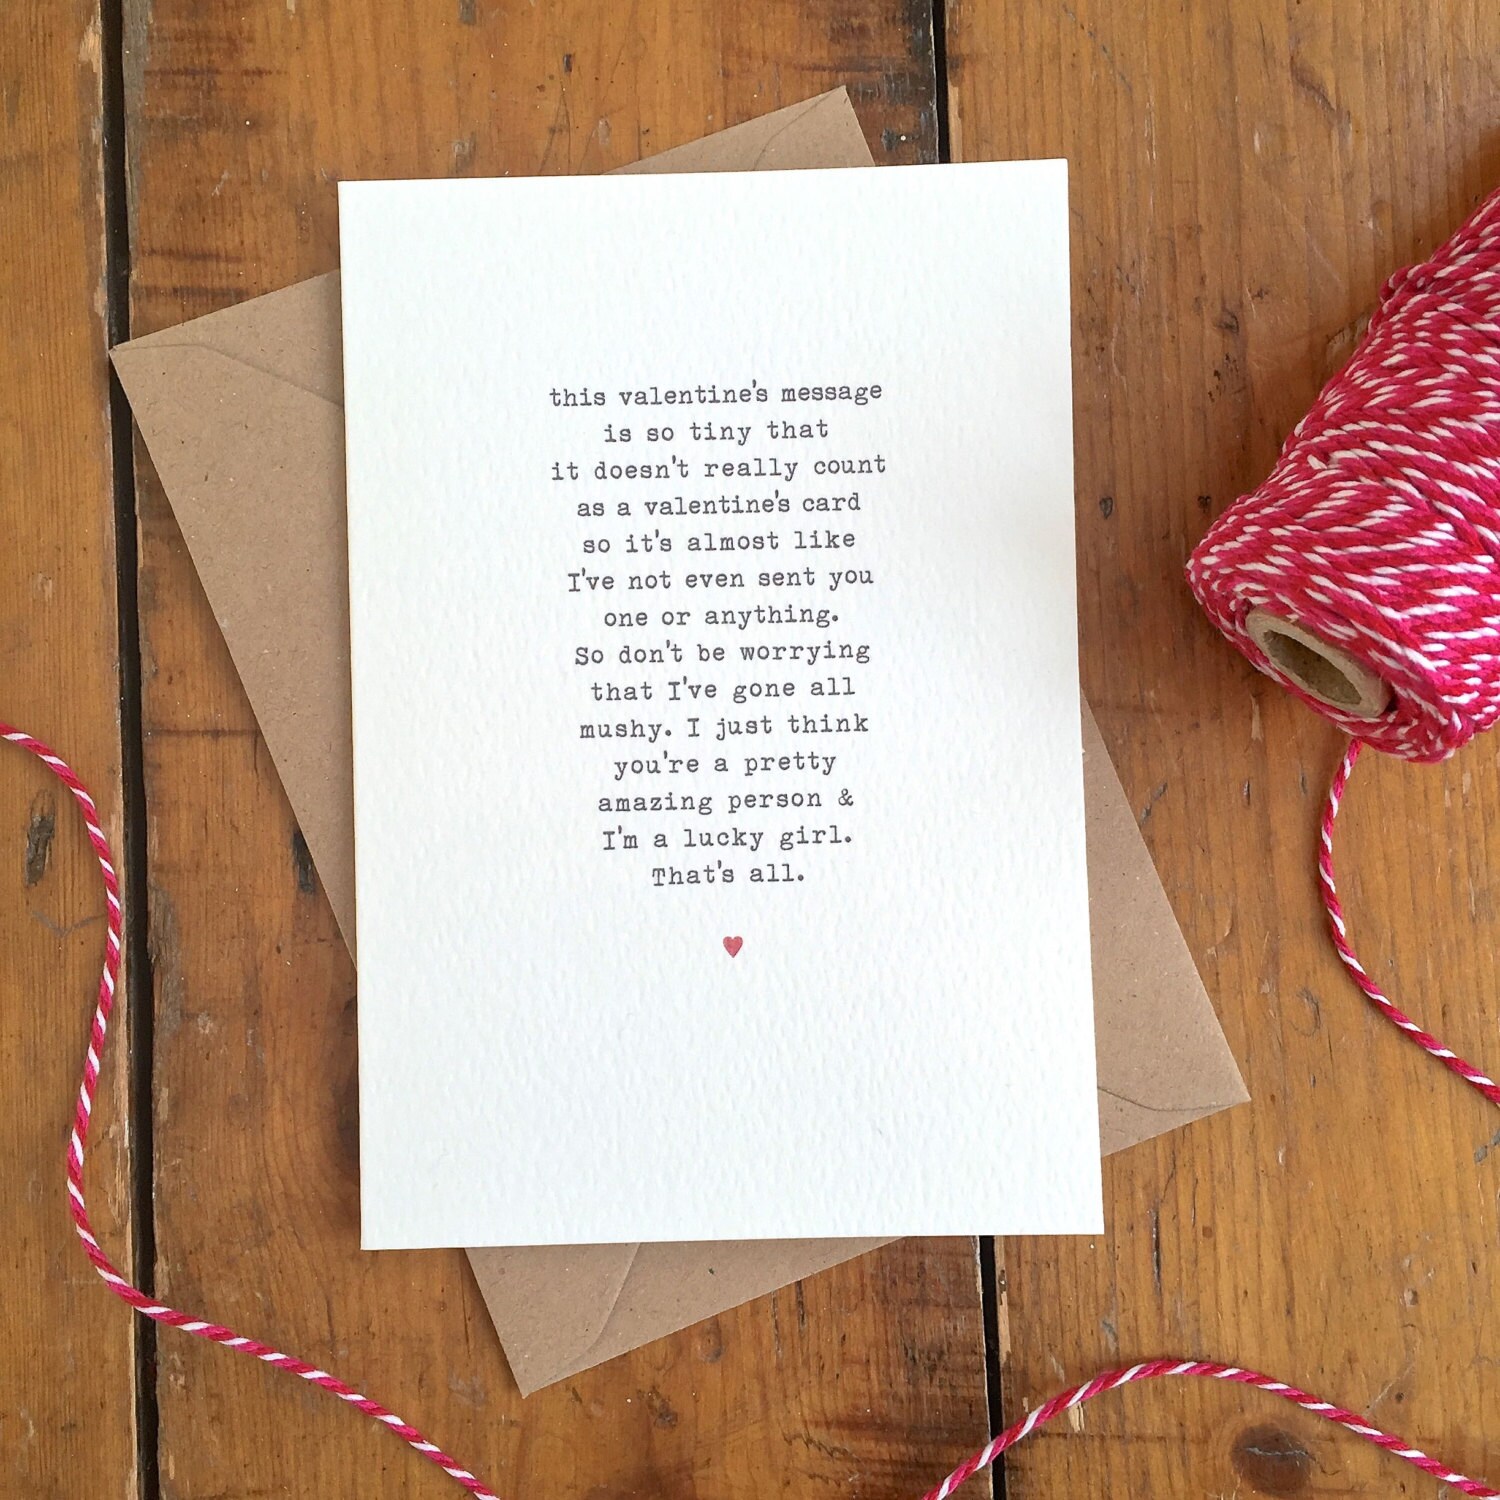 this valentine's message
is so tiny that
it doesn't really count
as a valentine's card
so it's almost like
I've not even sent you
one or anything.
So don't be worrying
that I've gone all
mushy. I just think
you're a pretty
amazing person &
I'm a lucky girl.
That's all.